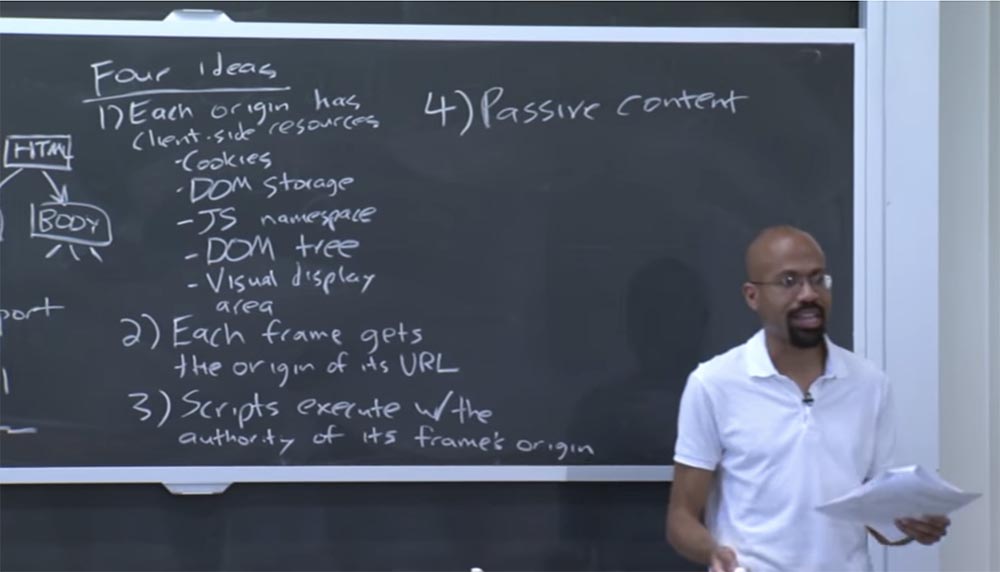 Four ideas
1) Each origin has
client-side resources
- Cookies
- DOM storage
- JS namespace
- DOM tree
- Visual display
area
2) Each frame gets
the origin of its URL
3) Scripts execute w/the
authority of its frame's origin
4) Passive content
HTML
BODY